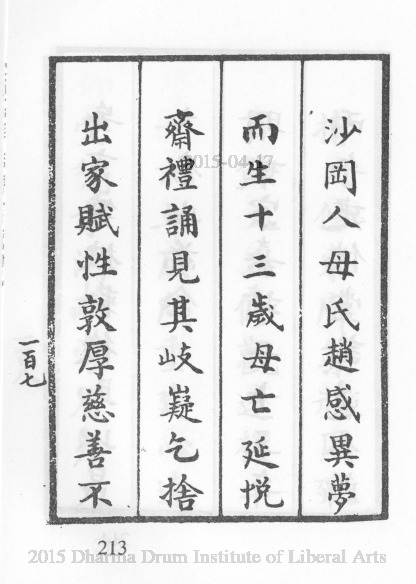 沙岡人母氏趙感異夢
而生十三歲母亡延悦
齋禮誦見其岐嶷乞捨
出家賦性敦厚慈善不
一百七
213
2015-04-17
2015 Dharma Drum Institute of Liberal Arts